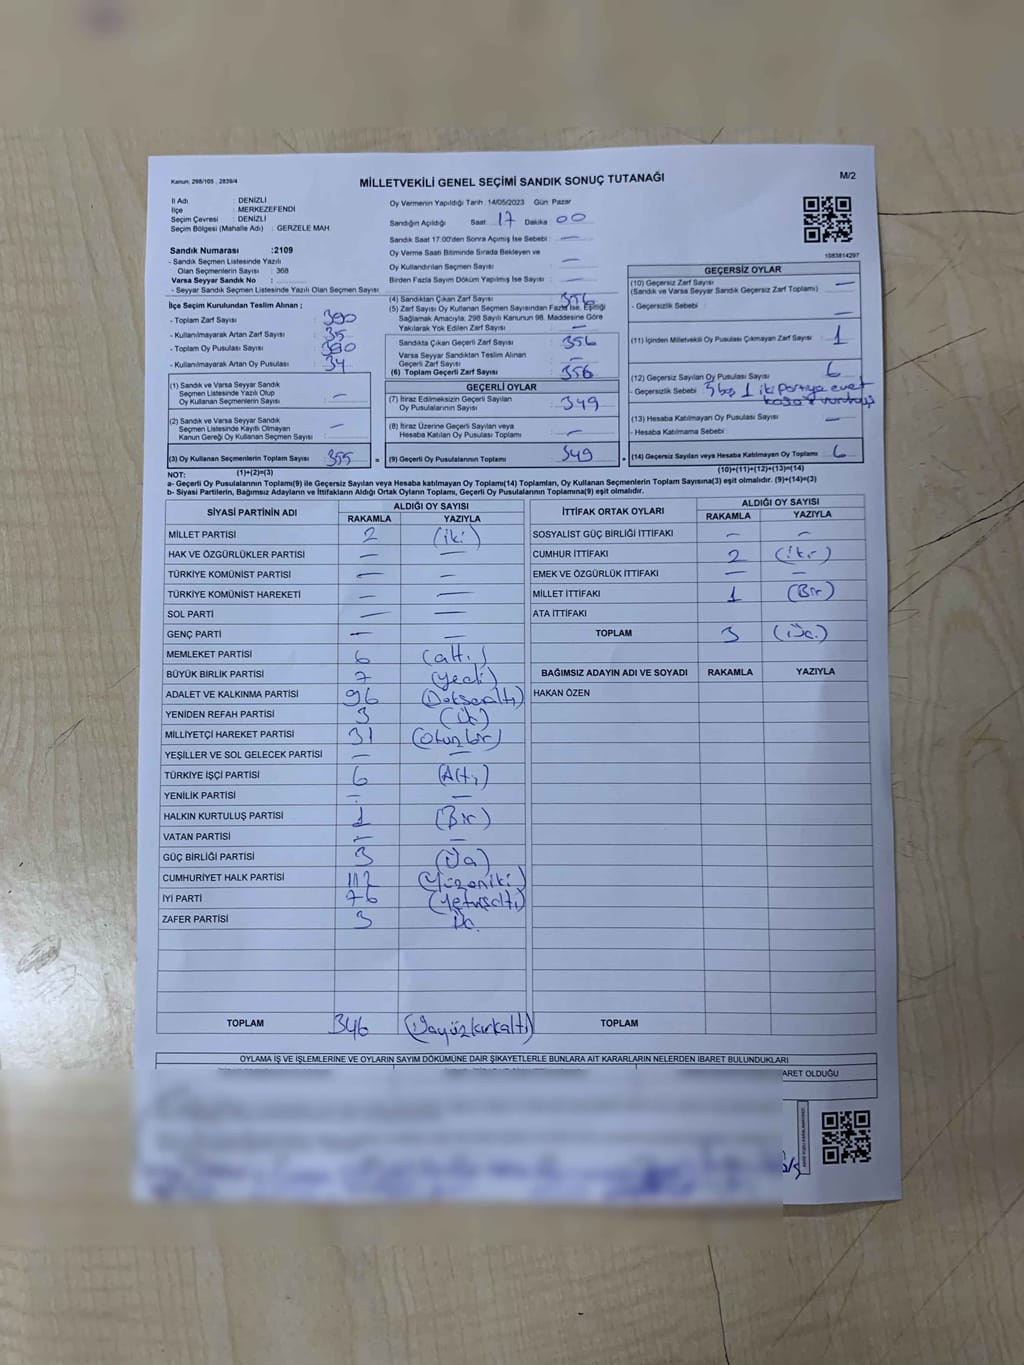 Kanun: 298/105 , 2839/4
MİLLETVEKİLİ GENEL SEÇİMİ SANDIK SONUÇ TUTANAĞI
M/2
İl Adı : DENİZLİ
İlçe : MERKEZEFENDİ
Seçim Çevresi : DENİZLİ
Seçim Bölgesi (Mahalle Adı) : GERZELE MAH.
Sandık Numarası :2109
- Sandık Seçmen Listesinde Yazılı
Olan Seçmenlerin Sayısı : 368
Varsa Seyyar Sandık No :
- Seyyar Sandık Seçmen Listesinde Yazılı Olan Seçmen Sayısı
İlçe Seçim Kurulundan Teslim Alınan ;
- Toplam Zarf Sayısı : 390
- Kullanılmayarak Artan Zarf Sayısı : 35
- Toplam Oy Pusulası Sayısı : 390
- Kullanılmayarak Artan Oy Pusulası : 34
(1) Sandık ve Varsa Seyyar Sandık
Seçmen Listesinde Yazılı Olup
Oy Kullanan Seçmenlerin Sayısı : —
(2) Sandık ve Varsa Seyyar Sandık
Seçmen Listesinde Kayıtlı Olmayan
Kanun Gereği Oy Kullanan Seçmen Sayısı : —
(3) Oy Kullanan Seçmenlerin Toplam Sayısı : 355
(1)+(2)=(3)
Oy Vermenin Yapıldığı Tarih :14/05/2023 Gün: Pazar
Sandığın Açıldığı Saat: 17 Dakika 00
Sandık Saat 17:00'den Sonra Açımış İse Sebebi : —
Oy Verme Saati Bitiminde Sırada Bekleyen ve
Oy Kullandırılan Seçmen Sayısı : —
Birden Fazla Sayım Döküm Yapılmış İse Sayısı : —
(4) Sandıktan Çıkan Zarf Sayısı : 356
(5) Zarf Sayısı Oy Kullanan Seçmen Sayısından Fazla İse, Eşitliği
Sağlamak Amacıyla, 298 Sayılı Kanunun 98. Maddesine Göre
Yakılarak Yok Edilen Zarf Sayısı : —
Sandıkta Çıkan Geçerli Zarf Sayısı : 356
Varsa Seyyar Sandıktan Teslim Alınan
Geçerli Zarf Sayısı : —
(6) Toplam Geçerli Zarf Sayısı : 356
GEÇERLİ OYLAR
(7) İtiraz Edilmeksizin Geçerli Sayılan
Oy Pusulalarının Sayısı : 349
(8) İtiraz Üzerine Geçerli Sayılan veya
Hesaba Katılan Oy Pusulası Toplamı : —
(9) Geçerli Oy Pusulalarının Toplamı : 349
1083814297
GEÇERSİZ OYLAR
(10) Geçersiz Zarf Sayısı
(Sandık ve Varsa Seyyar Sandık Geçersiz Zarf Toplamı) : —
- Geçersizlik Sebebi : —
(11) İçinden Milletvekili Oy Pusulası Çıkmayan Zarf Sayısı : 1
(12) Geçersiz Sayılan Oy Pusulası Sayısı : 6
- Geçersizlik Sebebi : 5 boş 1 iki partiye evet
(13) Hesaba Katılmayan Oy Pusulası Sayısı : —
- Hesaba Katılmama Sebebi :
(14) Geçersiz Sayılan veya Hesaba Katılmayan Oy Toplamı : 6
(10)+(11)+(12)+(13)=(14)
NOT:
a- Geçerli Oy Pusulalarının Toplamı(9) ile Geçersiz Sayılan veya Hesaba katılmayan Oy Toplamı(14) Toplamları, Oy Kullanan Seçmenlerin Toplam Sayısına(3) eşit olmalıdır. (9)+(14)=(3)
b- Siyasi Partilerin, Bağımsız Adayların ve İttifakların Aldığı Ortak Oyların Toplamı, Geçerli Oy Pusulalarının Toplamına(9) eşit olmalıdır.
SİYASİ PARTİNİN ADI ALDIĞI OY SAYISI
RAKAMLA YAZIYLA
MİLLET PARTİSİ 2 (iki)
HAK VE ÖZGÜRLÜKLER PARTİSİ — —
TÜRKİYE KOMÜNİST PARTİSİ — —
TÜRKİYE KOMÜNİST HAREKETİ — —
SOL PARTİ — —
GENÇ PARTİ — —
MEMLEKET PARTİSİ 6 (altı)
BÜYÜK BİRLİK PARTİSİ 7 (yedi)
ADALET VE KALKINMA PARTİSİ 96 (Doksanaltı)
YENİDEN REFAH PARTİSİ 3 (Üç)
MİLLİYETÇİ HAREKET PARTİSİ 31 (Otuzbir)
YEŞİLLER VE SOL GELECEK PARTİSİ — —
TÜRKİYE İŞÇİ PARTİSİ 6 (Altı)
YENİLİK PARTİSİ — —
HALKIN KURTULUŞ PARTİSİ 1 (Bir)
VATAN PARTİSİ — —
GÜÇ BİRLİĞİ PARTİSİ 3 (Üç)
CUMHURİYET HALK PARTİSİ 112 (Yüzoniki)
İYİ PARTİ 76 (Yetmişaltı)
ZAFER PARTİSİ 3 Üç
TOPLAM 346 (Üçyüzkırkaltı)
İTTİFAK ORTAK OYLARI ALDIĞI OY SAYISI
RAKAMLA YAZIYLA
SOSYALİST GÜÇ BİRLİĞİ İTTİFAKI — —
CUMHUR İTTİFAKI 2 (iki)
EMEK VE ÖZGÜRLÜK İTTİFAKI — —
MİLLET İTTİFAKI 1 (Bir)
ATA İTTİFAKI
TOPLAM 3 (Üç)
BAĞIMSIZ ADAYIN ADI VE SOYADI RAKAMLA YAZIYLA
HAKAN ÖZEN
TOPLAM
OYLAMA İŞ VE İŞLEMLERİNE VE OYLARIN SAYIM DÖKÜMÜNE DAİR ŞİKAYETLERLE BUNLARA AİT KARARLARIN NELERDEN İBARET BULUNDUKLARI
ARET OLDUĞU